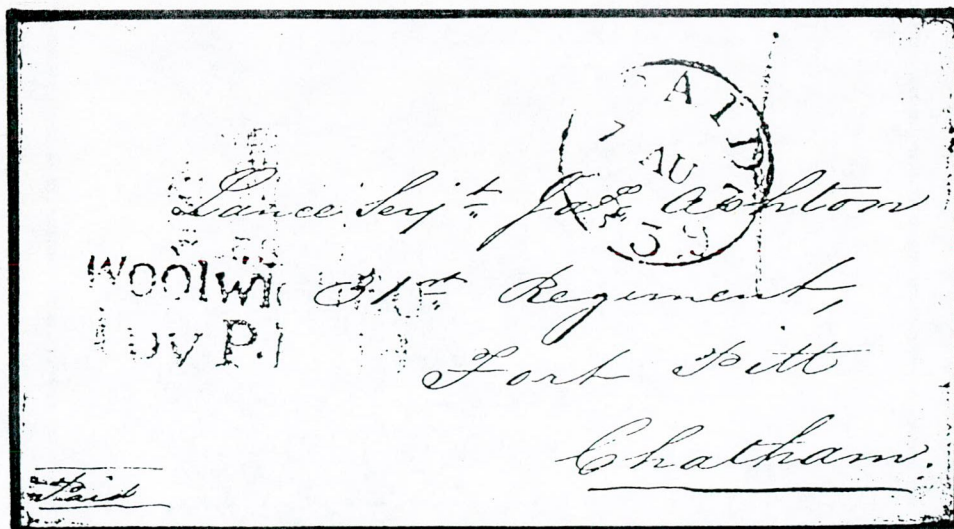 PAID
7
AU
Lance Serjt Jas Ashton
31st Regiment,
Fort Pitt
Chatham.
Paid